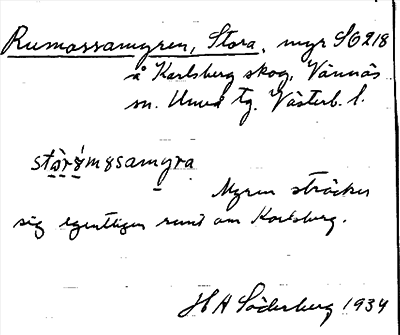 Rumossamyren, Stora, myr SO 218
å Karlsberg skog, Vännäs
sn. Umeå tg. Västerb. l.
stòrómosamyra
Myren sträcker
sig egentligen runt om Karlsberg.
H A Söderberg 1934